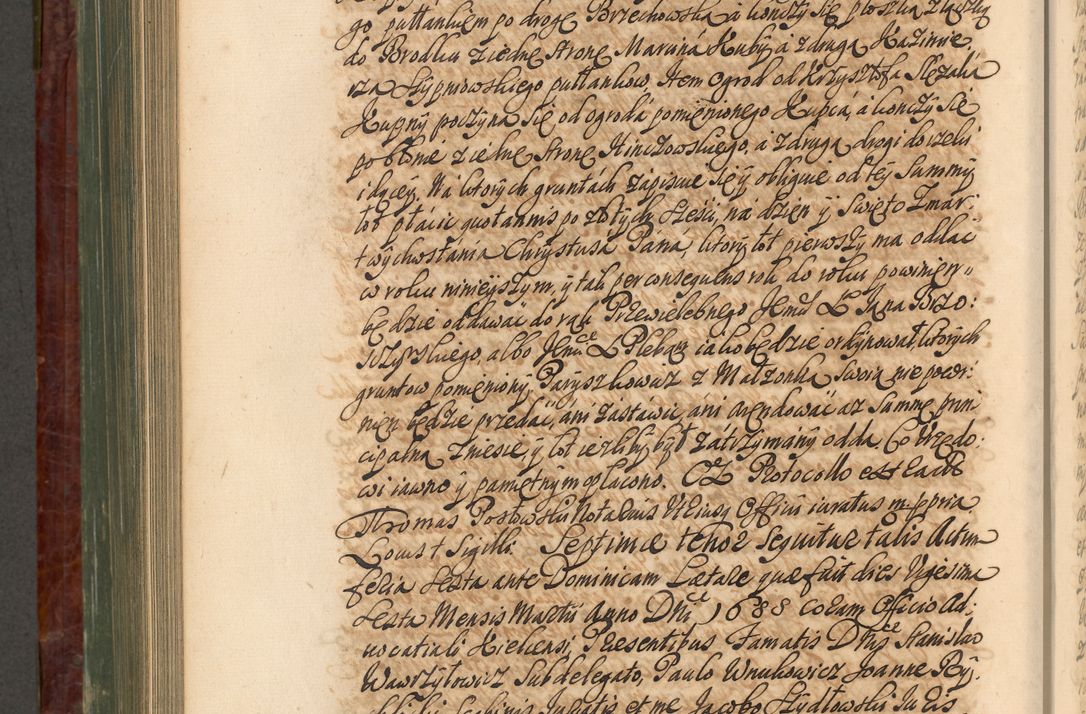 go pułłankiem po drogę Brzechowską a konczy się
do Brodku z iedne stronę Marciná Kuby, á z drugą Kazimie
rza Szypniowskiego pułłankow, Item ogrod od Krzysztofa Slęzaká
Kupny poczyna się od ogrodá pomienionego Kupcá, a konczy się
po błonié z iedne stronę Hinczowskiego, a z drugą drogi do
idącey. Na ktorych gruntach zapisuie się y obliguie od tey Summy
tot płácić quotannis po złotych sześci, na dzien y Swięto Zmar:
twychwstánia Chrystusa Páná, ktory tot pierwszy ma oddáć
w roku ninieyszym, y tak per consequens rok do roku powinien
będzie oddawáć do rąk Przewielebnego Jmci X Jana Brzo:
skiego, albo Jmci X Plebana iako będzie ordynował, ktorych
gruntow pomieniony Paryszkowicz z Małzonką Swoią nie powi:
nien będzie przedáć, áni zástawić, áni arendowáć az summę prin
cipalną zniesie, y tot ieżliby był zátrzymány odda. Co Urzędo:
wi iawno y pamiętnym opłacono. Ex Protocollo est
Thomas Postowski Notarius Utriusq Officii iuratus mppria
Locus † Sigilli. Septimae tenor sequitur talis Actum
feria sexta ante Dominicam Laetare quae fuit dies Vigesima
sexta Mensis Martii Anno Dni 1688 coram Officio Ad:
vocatiali Kielcensi, Praesentibus Famatis Dnis Stanislao
Wawrzyłowicz Subdelegato, Paulo Wnukowicz Joanne
Iuratis et me Jacobo Szydłowski